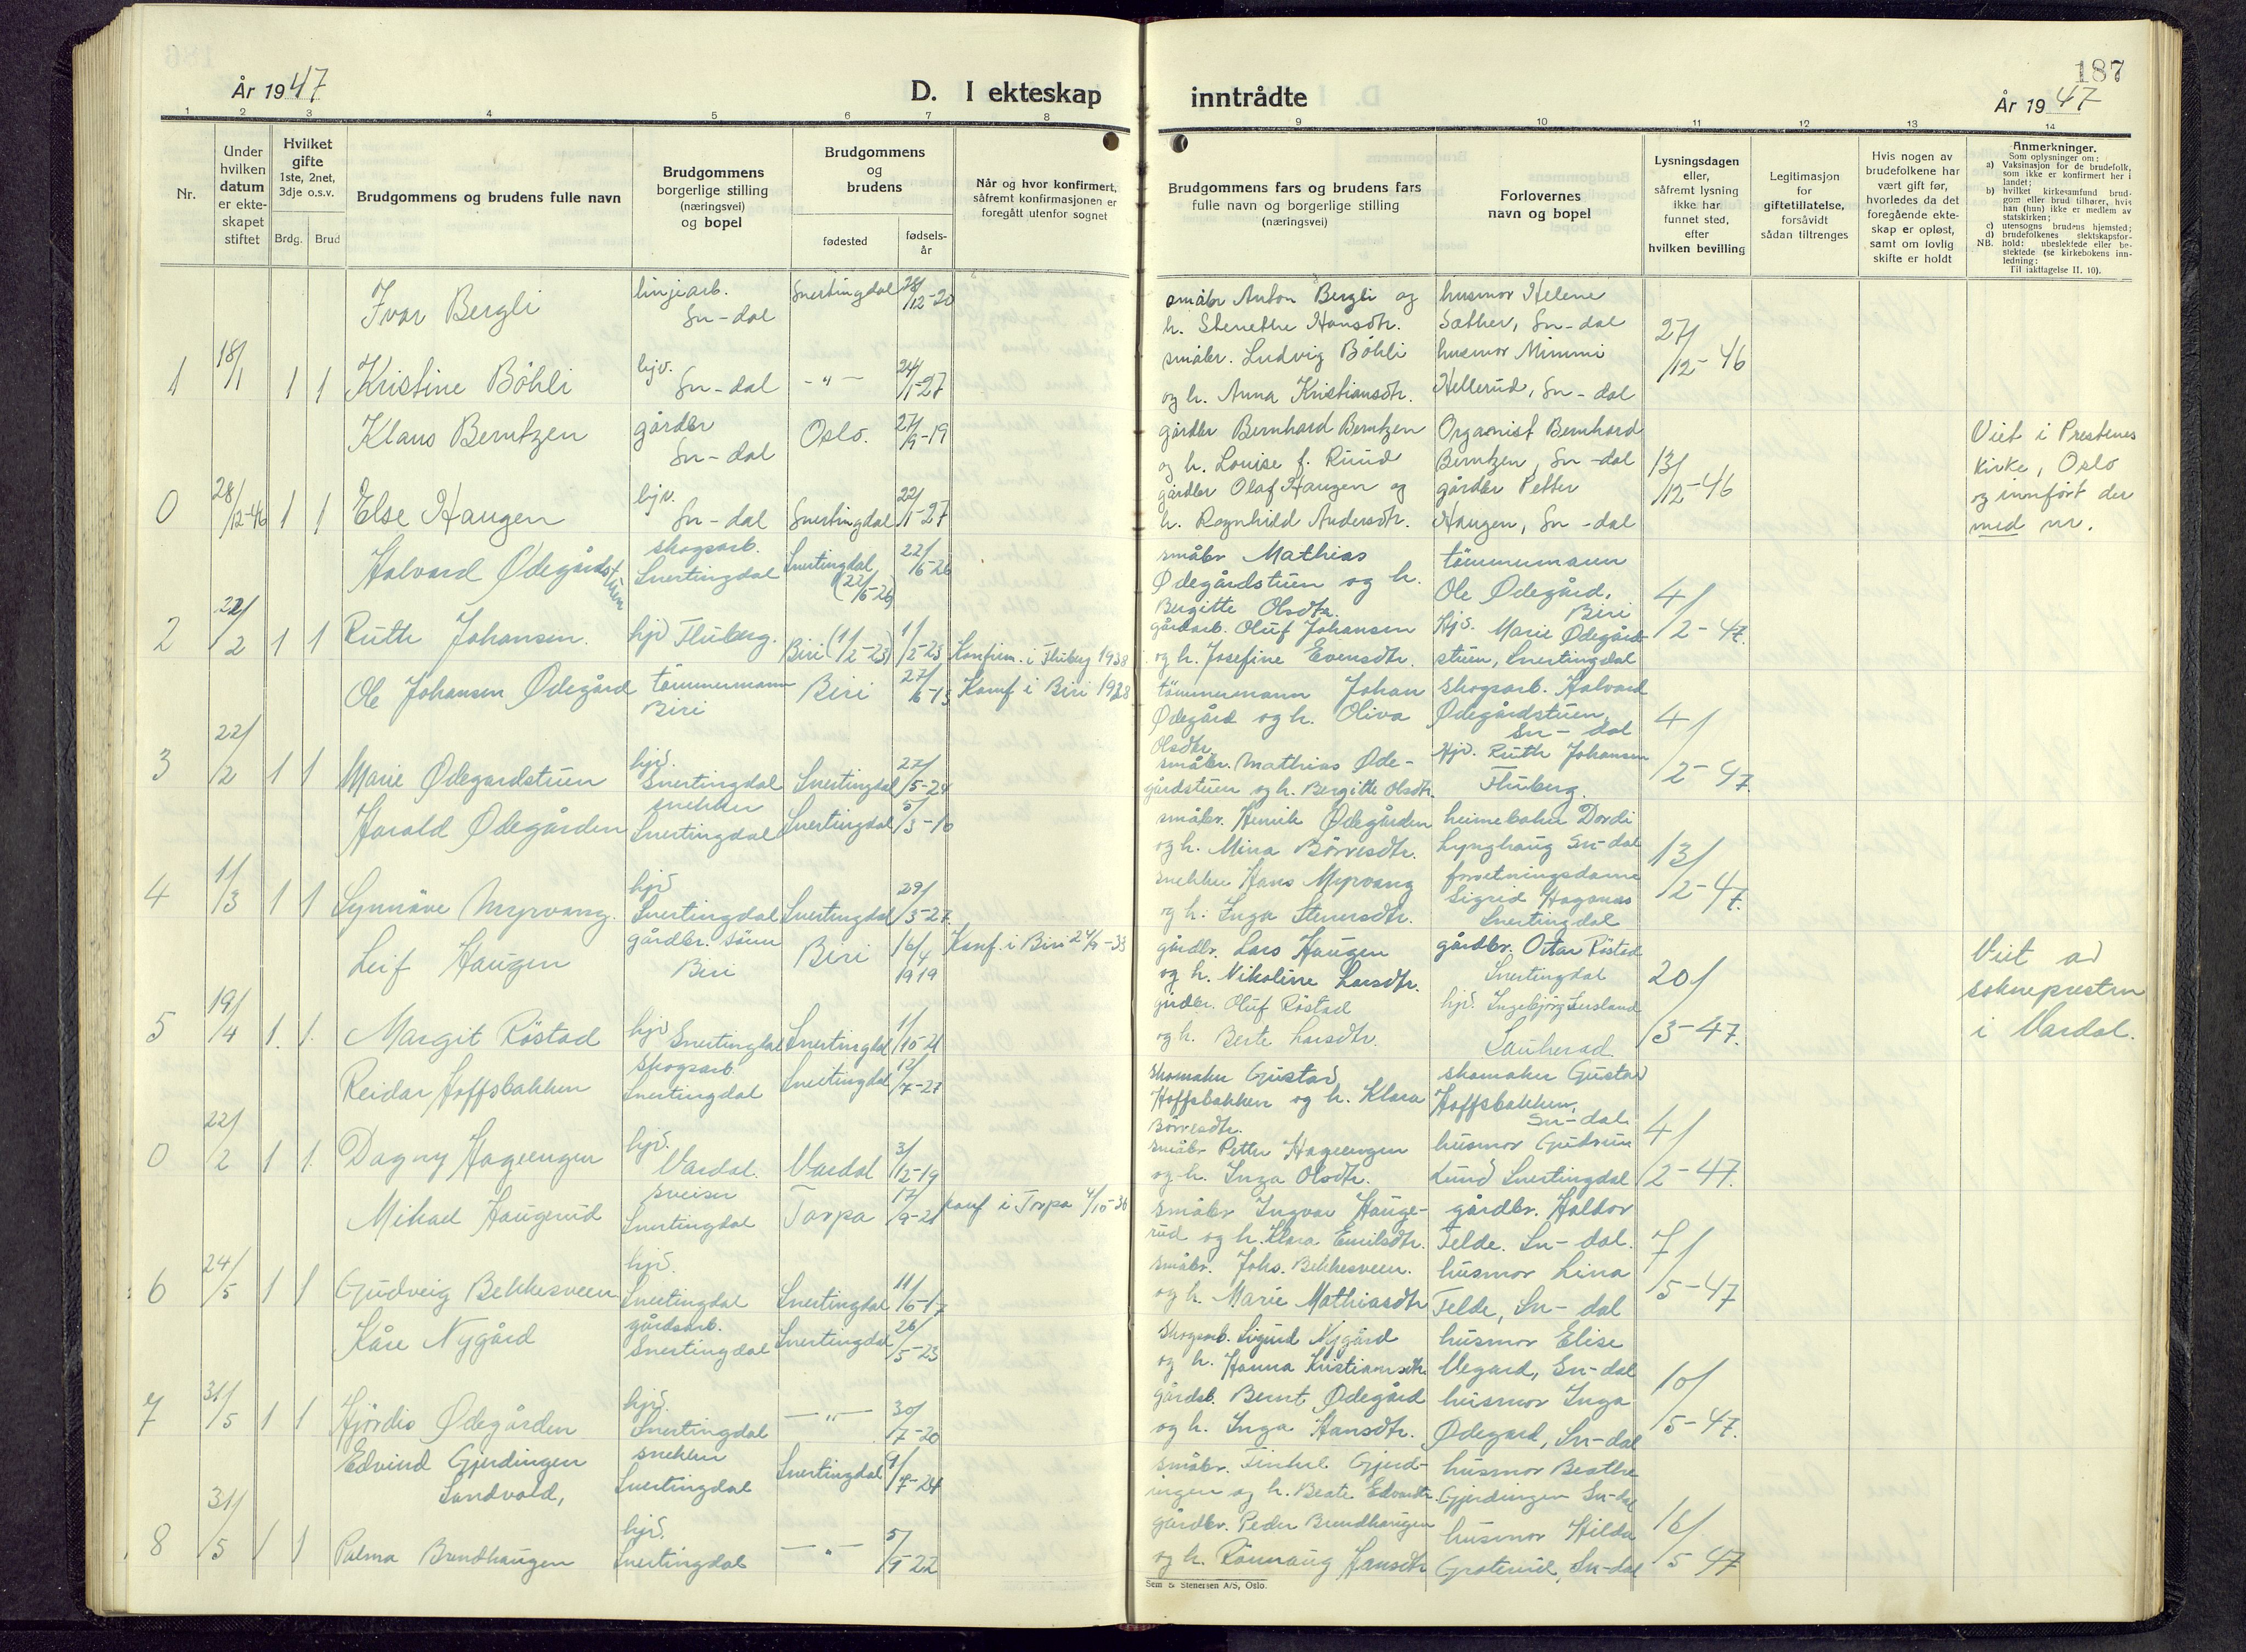 187
År 1947
D. I ekteskap inntrådte
År 1947
1 2 3 4 5 6 7 8 9 10 11 12 13 14
Nr.
Under hvilken datum er ekte-skapet stiftet
Hvilket gifte 1ste, 2net, 3dje o.s.v.
Brdg. Brud
Brudgommens og brudens fulle navn
Brudgommens borgerlige stilling (næringsvei) og bopel
Brudgommens og brudens
fødested
fødsels-år
Når og hvor konfirmert, såfremt konfirmasjonen er foregått utenfor sognet
Brudgommens fars og brudens fars fulle navn og borgerlige stilling (næringsvei)
Forlovernes navn og bopel
Lysningsdagen eller, såfremt lysning ikke har funnet sted, efter hvilken bevilling
Legitimasjon for giftetillatelse, forsåvidt sådan tiltrenges
Hvis nogen av brudefolkene har vært gift før, hvorledes da det foregående ekte-skap er opløst, samt om lovlig skifte er holdt
Anmerkninger.
Som oplysninger om:
a) Vaksinasjon for de brudefolk, som ikke er konfirmert her i landet;
b) hvilket kirkesamfund brud-gom eller brud tilhører, hvis han (hun) ikke er medlem av statskirken;
c) utensogns brudens hjemsted;
d) brudefolkenes slektskapsfor-hold: ubeslektede eller be-slektede (se kirkebokens inn-ledning:
NB. Til iakttagelse II. 10).
Ivar Bergli linjearb. Sn-dal Snertingdal 28/12-20
småbr Anton Bergli og h. Stenethe Hansdtr. husmor Helene Sæther, Sn-dal
1 18/1 1 1 Kristine Böhli hjv. Sn-dal -"- 24/1-27
småbr. Ludvig Böhli og h. Anna Kristiansdtr. husmor Mimmi Hellerud, Sn-dal 27/12-46
Klaus Berntzen gårdbr Sn-dal Oslo. 27/9-19
gårdbr Bernhard Berntzen og h. Louise f. Ruud Organist Bernhard Berntzen, Sn-dal
0 28/12-46 1 1 Else Haugen hjv. Sn-dal Snertingdal 22/1-27
gårdbr Olaf Haugen og h. Ragnhild Andersdtr. gårdbr Petter Haugen, Sn-dal 13/12-46
Viet i Prestenes kirke, Oslo og innført der med nr.
Halvard Ødegårdstuen skogsarb. Snertingdal Snertingdal (22/6-26) 22/6-26
småbr Mathias Ødegårdstuen og h. Bergitte Olsdtr. tömmermann Ole Ødegård, Biri
2 22/2 1 1 Ruth Johansen. hjv Fluberg. Biri (1/2-23) 1/2-23 Konfirm. i Fluberg 1938
gårdarb. Oluf Johansen og h. Josefine Evensdtr. Hjv. Marie Ødegårdstuen, Snertingdal 4/2-47.
Ole Johansen Ødegård tömmermann Biri Biri 27/6-13 Konf i Biri 1928
tömmermann Johan Ødegård og h. Oliva Olsdtr skogsarb. Halvard Ødegårdstuen, Sn-dal
3 22/2 1 1 Marie Ødegardstuen hjv. Snertingdal Snertingdal 22/5-24
småbr. Mathias Øde-gårdstuen og h. Bergitte Olsdtr. Hjv. Ruth Johansen Fluberg. 4/2-47.
Harald Ødegården snekker Snertingdal Snertingdal 5/3-10
småbr. Henrik Ødegården og h. Mina Börresdtr. heimebaker Dordi Lynghaug Sn-dal
4 1/3 1 1 Synnöve Myrvang. hjv Snertingdal Snertingdal 29/3-27.
snekker Hans Myrvang og h. Inga Stenersdtr. forretningsdame Sigrid Haganæs Snertingdal 13/2-47.
Leif Haugen gårdbr. sönn Biri Biri 16/4 1919 Konf. i Biri 24/9-33
gårdbr. Lars Haugen og h. Nikoline Larsdtr. gårdbr. Ottar Röstad Snertingdal
5 19/4 1. 1. Margit Röstad hjv Snertingdal Snertingdal 1/10-21
gårdbr. Oluf Röstad og h. Berte Larsdtr. hjv. Ingebjörg Sauherad. 20/3-47.
Viet av sokneprestn i Vardal.
Reidar Hoffsbakken skogsarb. Snertingdal Snertingdal 12/7-27
skomaker Gustav Hoffsbakken og h. Klara Börresdtr. skomaker Gustav Hoffsbakken, Sn-dal
0 22/2 1 1. Dagny Hageengen hjv. Vardal. Vardal 3/12-19
småbr Petter Hageengen og h. Inga Olsdtr. husmor Gudrun Lund Snertingdal 4/2-47.
Mikael Haugerud sveiser Snertingdal Torpa 17/9-21 konf i Torpa 4/10-36
småbr Ingvar Hauge-rud og h. Klara Emilsdtr. gårdbr. Haldor Felde. Sn-dal.
6 24/5 1 1 Gudveig Bekkesveen hjv. Snertingdal Snertingdal 11/6-17
småbr. Johs. Bekkesveen. og h. Marie Mathiasdtr husmor Lina Felde, Sn-dal 7/5-47
Kåre Nygård gårdsarb. Snertingdal Snertingdal 26/5-23
skogsarb. Sigurd Nygård og h. Hanna Kristiansdtr husmor Elise Vegard, Sn-dal
7 31/5 1 1 Hjördis Ødegården hjv. Snertingdal -"- 30/7-20
gårdsb. Bernt Ødegård og h. Inga Hansdtr. husmor Inga Ødegard, Sn-dal 10/5-47.
Edvind Gjerdingen Sandvold, snekker Snertingdal Snertingdal 9/7-24
småbr. Gjerd-ingen og h. Beate Edvardtr. husmor Beathe Gjerdingen Sn-dal
8 31/5 1 1 Palma Brendhaugen hjv. Snertingdal -"- 5/9-22
gårdbr. Peder Brendhaugen og h. Rönnaug Hansdtr husmor Hilda Sn-dal 16/5-47
Sem & Stenersen A/S, Oslo.